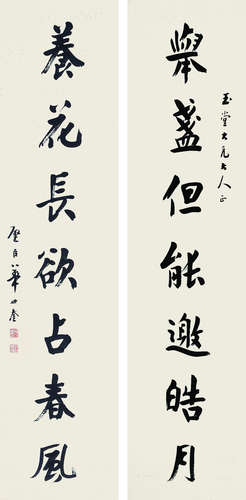 玉堂大兄大人正
舉盞但能邀皓月
養花長欲占春風
璧臣華世奎